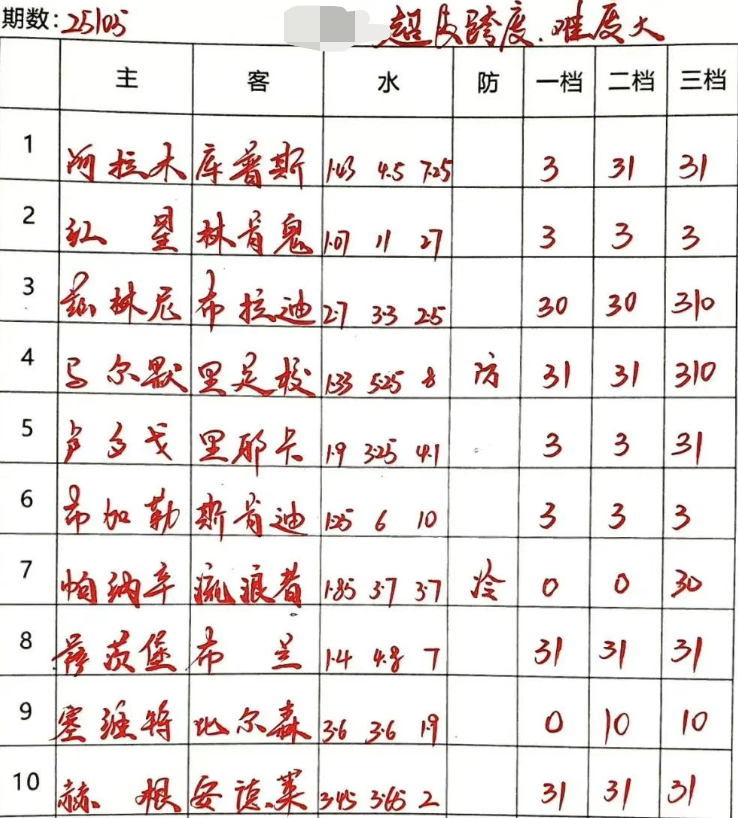 期数:25105 超大跨度.难度大
主 客 水 防 一档 二档 三档
1 阿拉木 库普斯 1.43 4.5 7.25 3 31 31
2 红星 林肯鬼 1.07 11 27 3 3 3
3 兹林尼 布拉迪 2.7 3.3 2.5 30 30 310
4 马尔默 里足校 1.33 5.25 8 防 31 31 310
5 卢多戈 里耶卡 1.9 3.25 4.1 3 3 31
6 布加勒 斯肯迪 1.25 6 10 3 3 3
7 帕纳辛 流浪者 1.85 3.7 3.7 冷 0 0 30
8 萨茨堡 布兰 1.4 4.8 7 31 31 31
9 塞维特 比尔森 3.6 3.6 1.9 0 10 10
10 赫根 安德莱 3.45 3.65 2 31 31 31